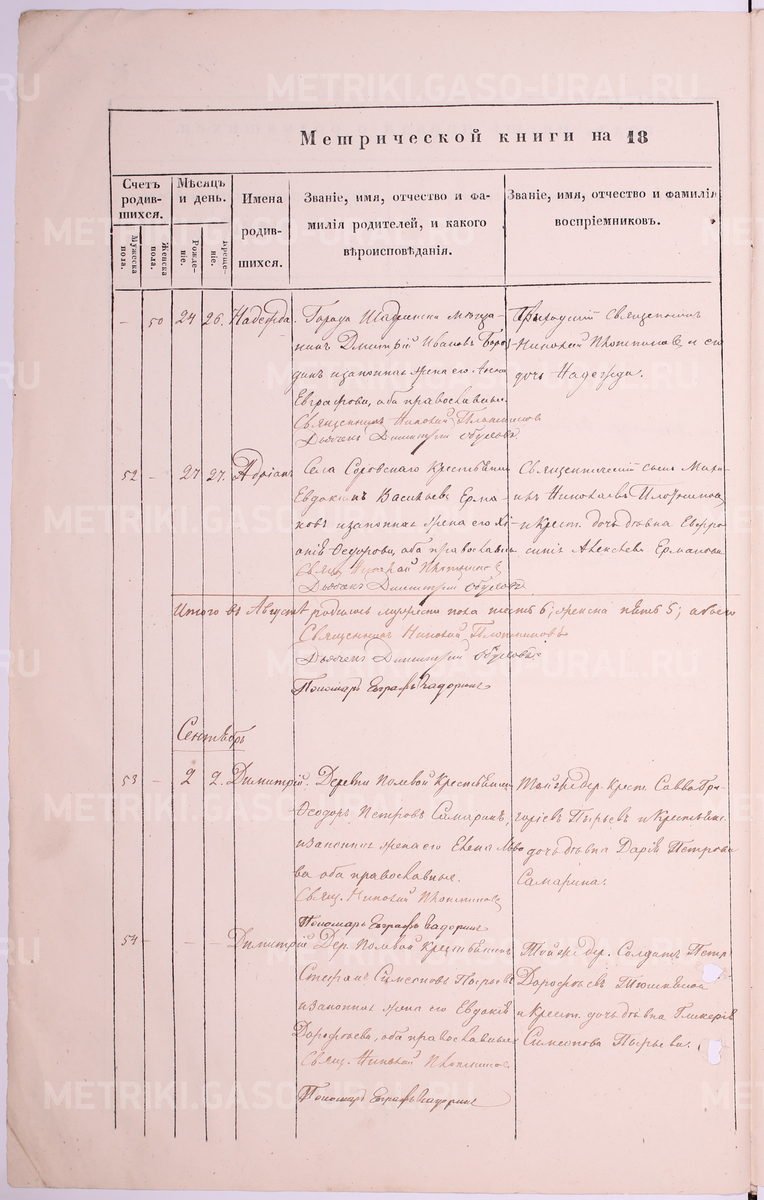 Метрической книги на 18
Счетъ родившихся.
Мужеска пола.
Женска пола.
Мѣсяцъ и день.
Рожденіе.
Крещеніе.
Имена родившихся.
Званіе, имя, отчество и фамилія родителей, и какого вѣроисповѣданія.
Званіе, имя, отчество и фамилія воспріемниковъ.
- 50 24 26. Надежда.
Города Шадринска мѣща-
нинъ Дмитрій Ивановъ Боро-
динъ и законная жена его Анна
Евграфова, оба православные.
Священникъ Николай Плотниковъ
Дьячекъ Димитрій Обуховъ
Приходскій Священникъ
Николай Плотниковъ и его
дочь Надежда.
52 - 27. 27. Адріанъ
Села Соровскаго крестьянинъ
Евдокимъ Васильевъ Ерма-
ковъ и законная жена его Хі-
онія Ѳедорова, оба православны
Свящ. Николай Плотниковъ
Дьячекъ Димитрій Обуховъ
Священническій сынъ
Николаевъ Плотниковъ
и крест. дочь дѣвка Евфро-
синія Алексѣева Ермакова
Итого въ Августѣ родилось мужеска пола шесть 6; женска пять 5; а всего
Священникъ Николай Плотниковъ
Дьячекъ Димитрій Обуховъ
Пономарь Евграфъ
Сентябрь
53 - 2 2. Димитрій.
Деревни Полевой крестьянинъ
Ѳеодоръ Петровъ Самаринъ,
и законная жена его Елена Льво
ва оба православные.
Свящ. Николай Плотниковъ
Пономарь Евграфъ
Той же дер. крест. Савва Гри-
горіевъ Пырьевъ и крестьянс.
дочь дѣвка Дарія Петрова
Самарина.
54 - - - Димитрій
Дер. Полевой крестьянинъ
Стефанъ Симеоновъ Пырьевъ
и законная жена его Евдокія
Дорофѣева, оба православные
Свящ. Николай Плотниковъ
Пономарь Евграфъ
Той же дер. Солдатъ Петръ
Дорофѣевъ
и крест. дочь дѣвка Гликерія
Симеонова Пырьева.
METRIKI.GASO-URAL.RU